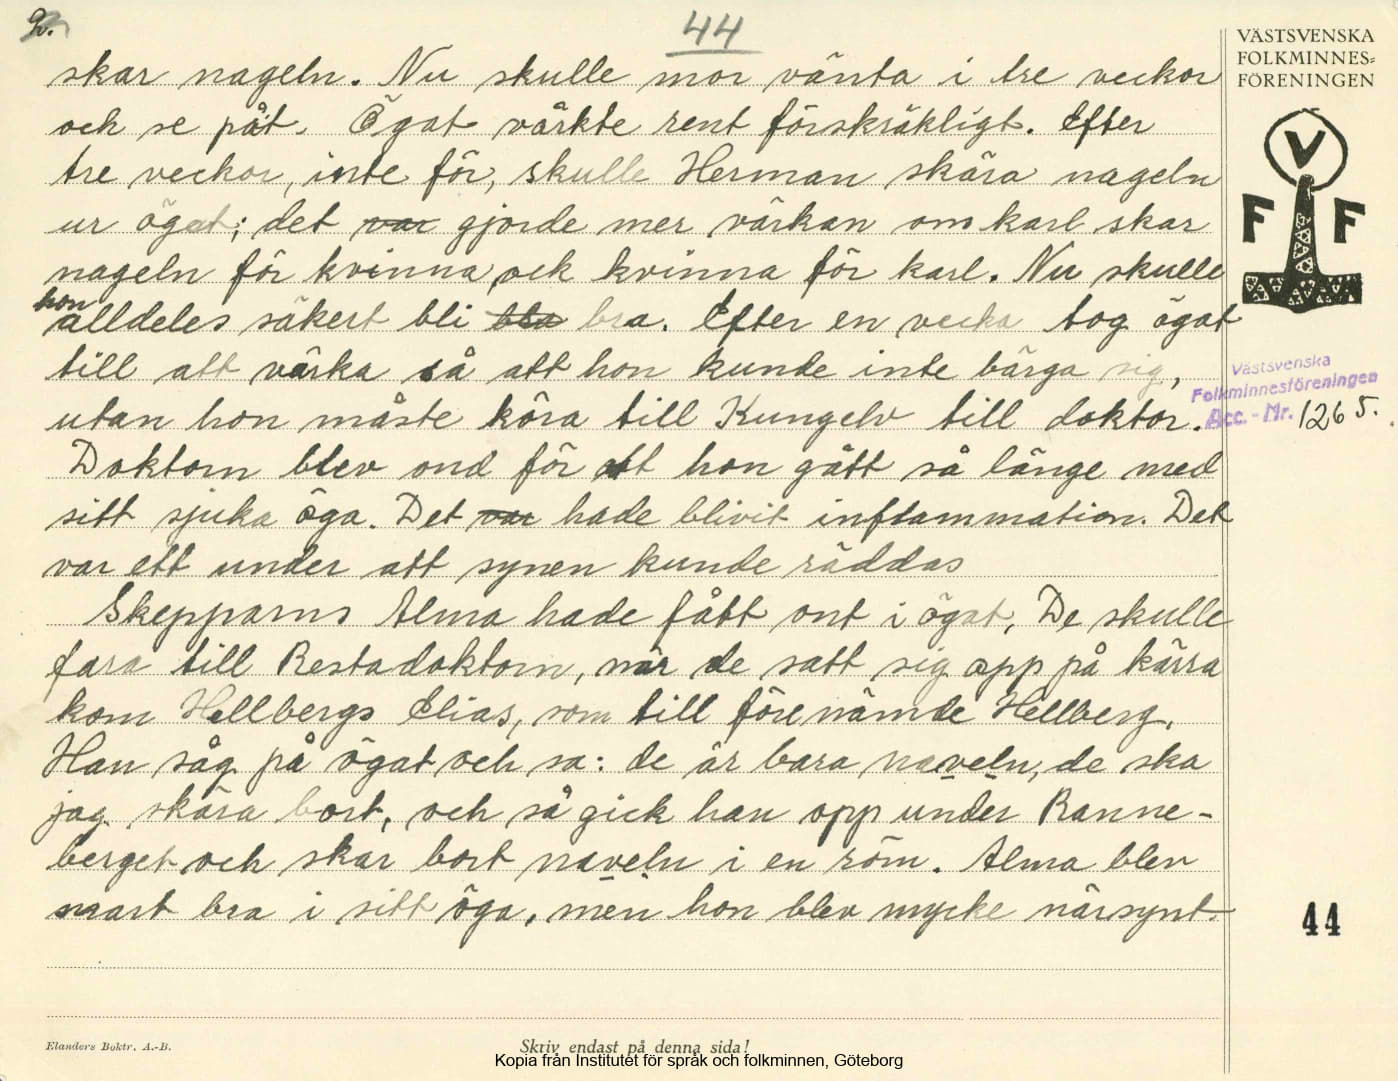 2.
44
skar nageln. Nu skulle mor vänta i tre veckor
och se påt. Ögat värkte rent förskräkligt. Efter
tre veckor, inte för, skulle Herman skära nageln
ur ögat; det var gjorde mer värkan om karl skar
nageln för kvinna, ock kvinna för karl. Nu skulle
hon
alldeles säkert bli bla bra. Efter en vecka tog ögat
till att värka så att hon kunde inte bärga sig,
utan hon måste köra till Kungelv till doktor.
Doktorn blev ond för att hon gått så länge med
sitt sjuka öga. Det var hade blivit inflammation. Det
var ett under att synen kunde räddas
Skepparns Alma hade fått ont i ögat, De skulle
fara till Restadoktorn, när de satt sig opp på kärra
kom Hellbergs Elias, som till förenämde Hellberg.
Han såg på ögat och sa: de är bara naveln, de ska
jag skära bort, och så gick han opp under Ranne-
berget och skar bort naveln i en röm. Alma blev
snart bra i sitt öga, men hon blev mycke närsynt.
VÄSTSVENSKA
FOLKMINNES-
FÖRENINGEN
V
F F
Västsvenska
Folkminnesföreningen
Acc.-Nr. 1265.
44
Elanders Boktr. A.-B.
Skriv endast på denna sida!
Kopia från Institutet för språk och folkminnen, Göteborg